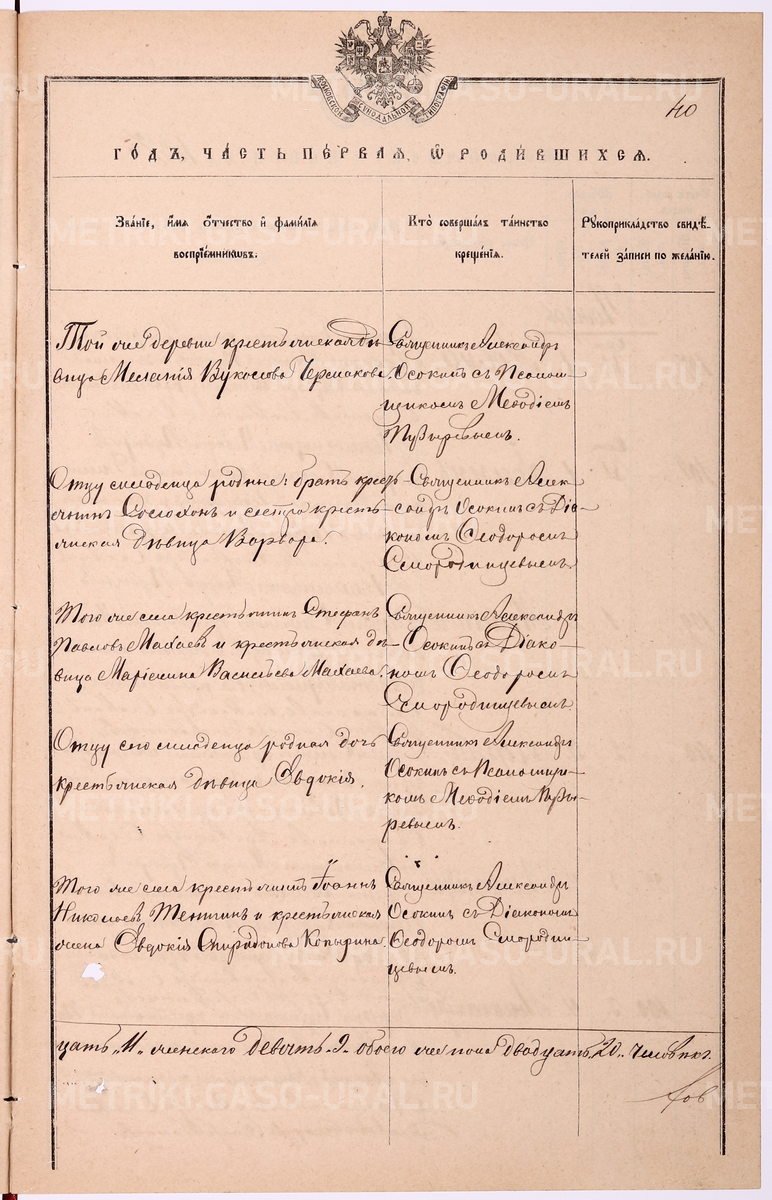 40
МОСКОВСКОЙ СѴНОДАЛЬНОЙ ТИПОГРАФІИ
ГОДЪ, ЧАСТЬ ПЕРВАЯ, Ѡ РОДИВШИХСЯ.
Званіе, имя отчество и фамилія
воспріемникωвъ.
Кто совершалъ таинство
крещенія.
Рꙋкоприкладство свидѣ-
телей записи по желанію.
Той же деревни крестьянская дѣ-
вица Меланія Вуколова Чермакова.
Священникъ Александръ
Осокинъ съ Псаломщ-
щикомъ Меѳодіемъ
Пузыревымъ.
Отцу младенца родные: братъ крест-
янинъ и сестра кресть-
янская дѣвица Варвара.
Священникъ Алек-
сандръ Осокинъ съ Діа-
кономъ Ѳеодоромъ
Смородинцевымъ.
Того же села крестьянинъ Стефанъ
Павловъ Махаевъ и крестьянская дѣ-
вица Васильева Махаева.
Священникъ Александръ
Осокинъ съ Діако-
номъ Ѳеодоромъ
Смородинцевымъ.
Отцу сего младенца родная дочь
крестьянская дѣвица Евдокія.
Священникъ Александръ
Осокинъ съ Псаломщи-
комъ Меѳодіемъ Пузы-
ревымъ.
Того же села крестьянинъ Іоаннъ
Николаевъ и крестьянская
жена Евдокія Спиридонова Копырина.
Священникъ Александръ
Осокинъ съ Діакономъ
Ѳеодоромъ Смородин-
цевымъ.
цать „11" женскаго девять „9" обоего же пола двадцать „20" человѣкъ.
METRIKI.GASO-URAL.RU